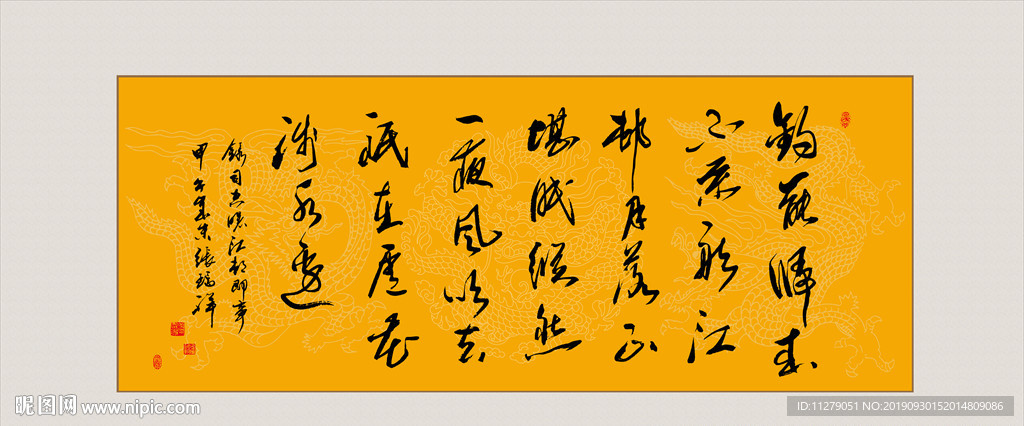 釣罷歸來
不系船江
邨月落正
堪眠縱然
一夜風吹去
祇在蘆花
淺水邊
錄司空曙江邨即事
甲午歲末張瑞祥
昵图网 www.nipic.com
ID:11279051 NO:20190930152014809086